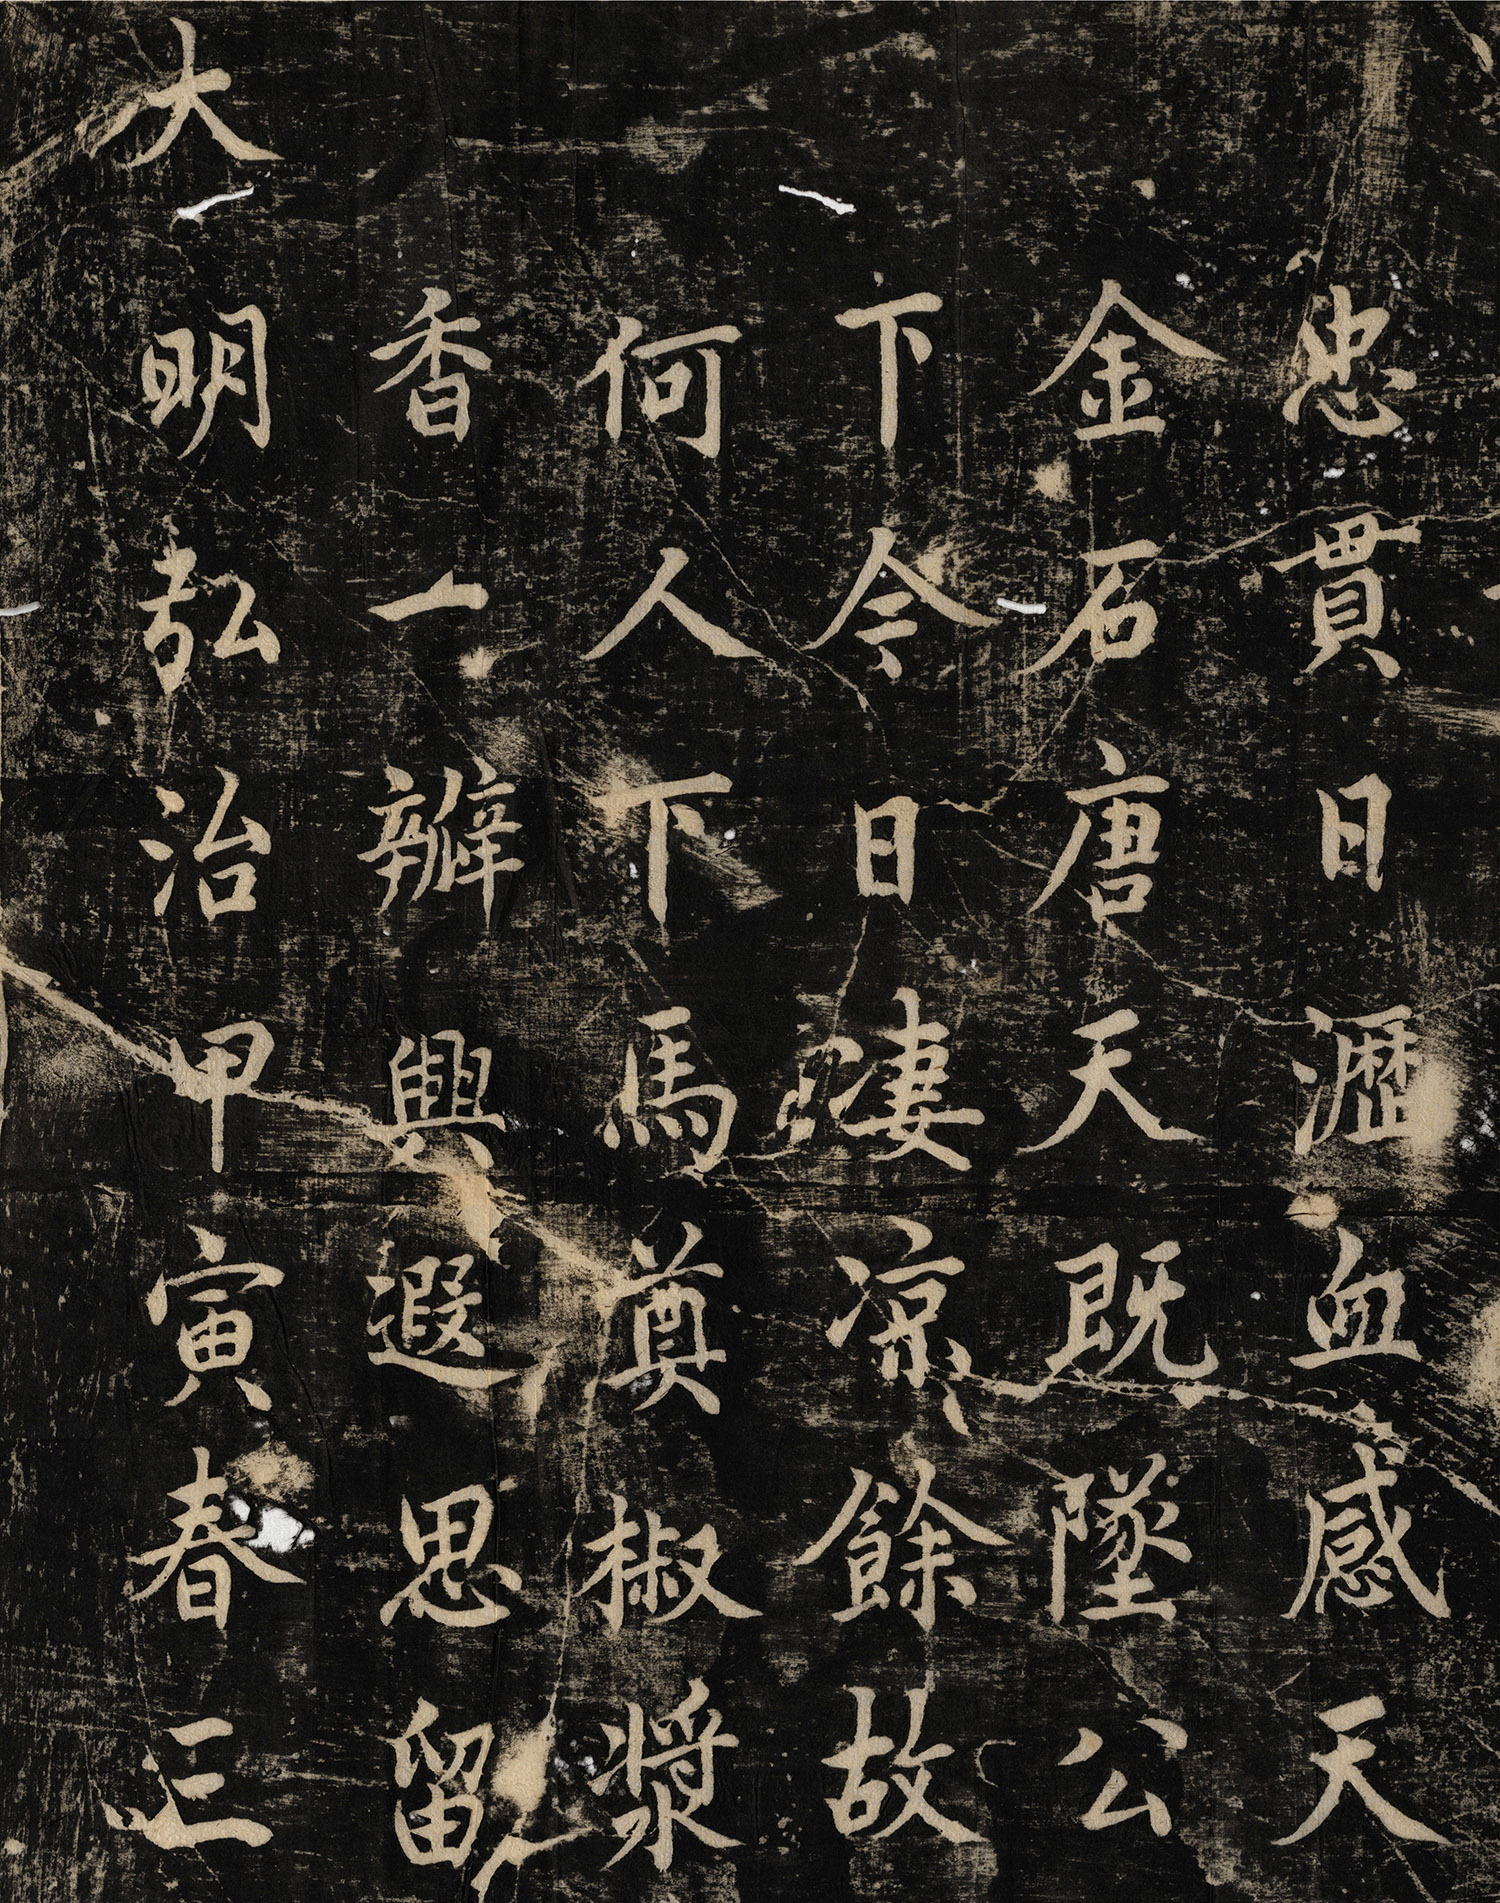 忠貫日瀝血感天
金石唐天既墜公
下令日淒涼餘故
何人下馬奠椒漿
香一瓣興遐思留
大明弘治甲寅春三